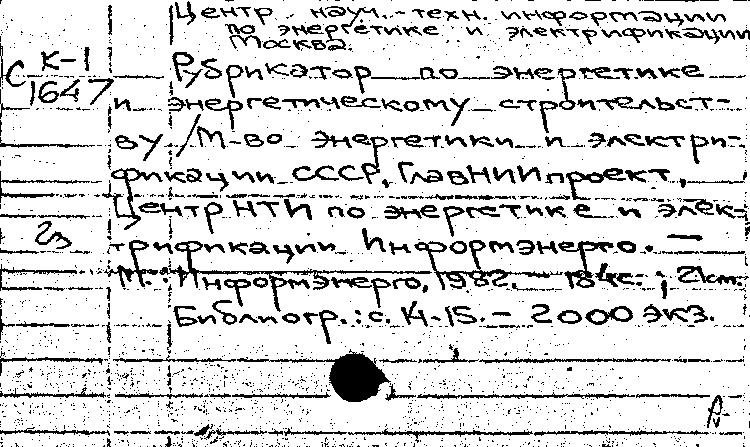 Центр науч.-техн. информации
по энергетике и электрификации
Москва.
С К-1
1647
Рубрикатор по энергетике
и энергетическому строительст-
ву / М-во энергетики и электри-
фикации СССР, ГлавНИИпроект,
ЦентрНТИ по энергетике и элек-
трификации Информэнерго. —
М.: Информэнерго, 1982. — 184с.; 21см.
Библиогр.: с. 14-15. – 2000 экз.